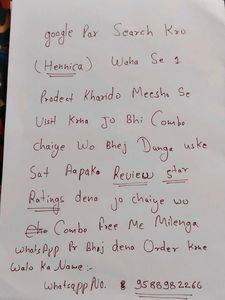 google Par Search Kro
(Hennica) Waha Se 1
Prodect Kharido Meesho Se
Usit Krna Jo Bhi Combo
chaiye Wo Bhej Dunga uske
Sat Aapako Review star
Ratings dena jo chaiye wo
Combo free Me Milenga
WhatsApp Pr Bhej dena Order krne
Walo Ka Name :-
Whatsapp No. 9588982266